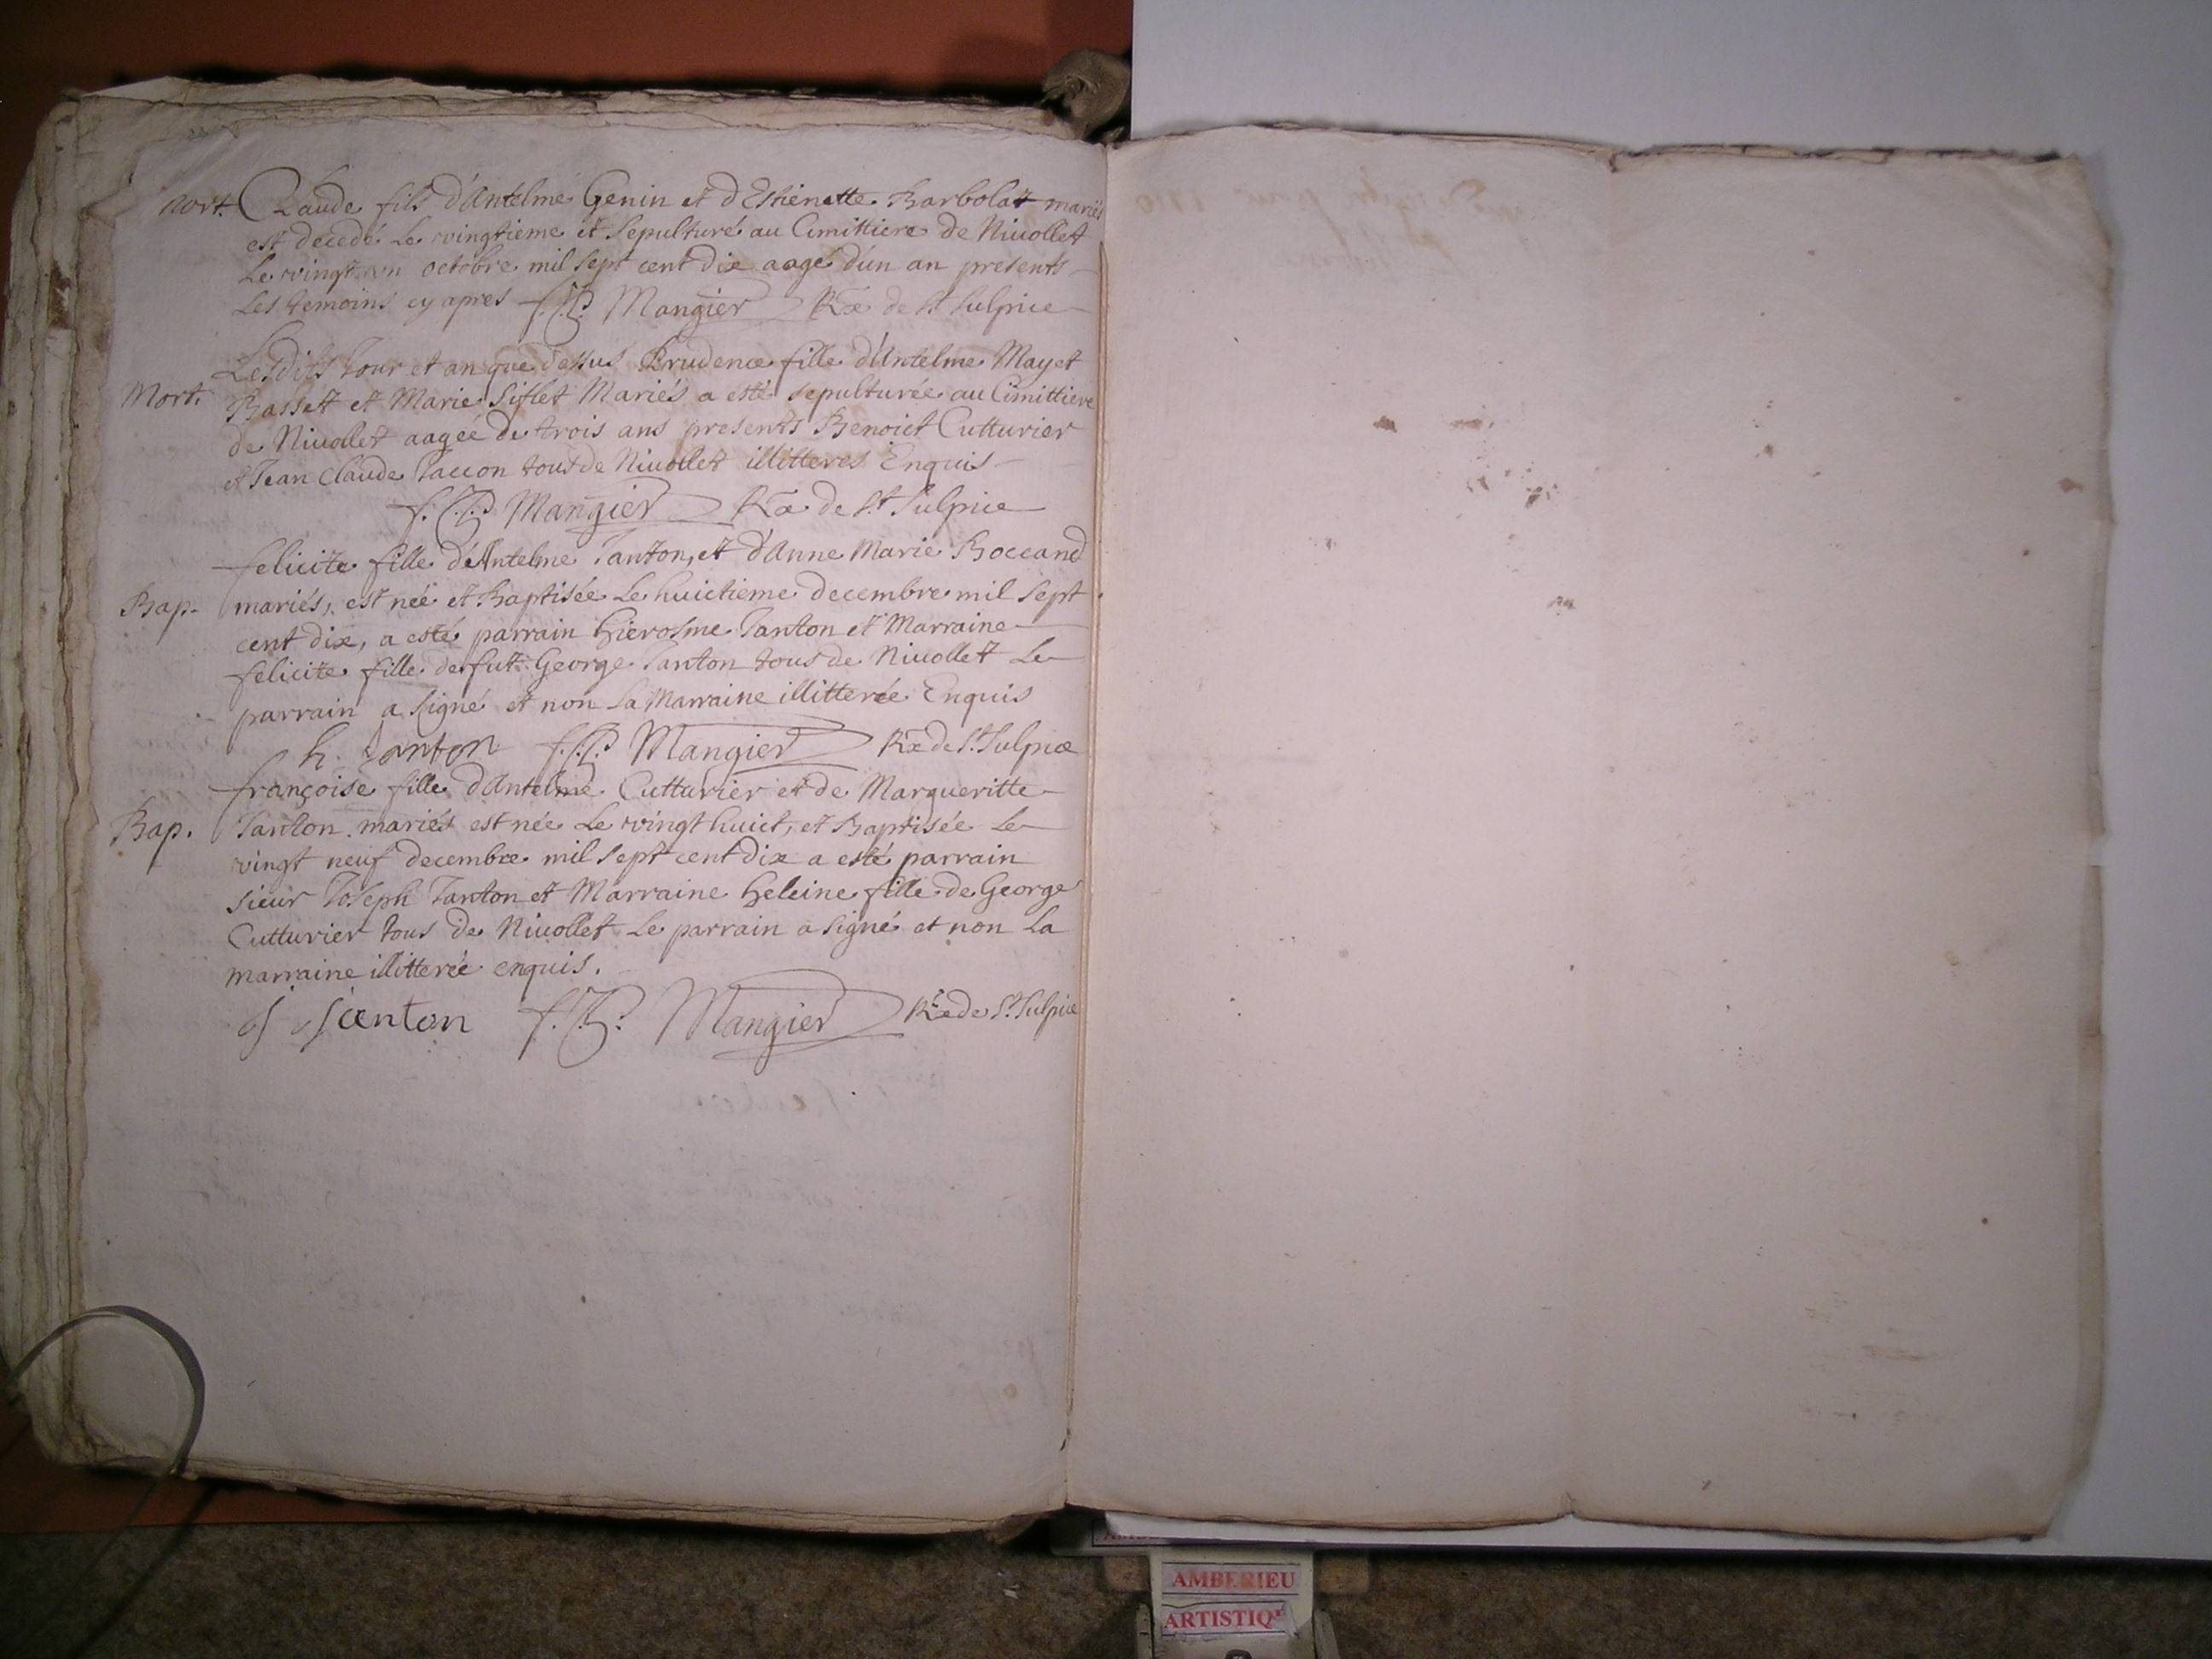 mort. Claude fils d'Antelme Genin et d'Estienette Barbolat mariés
est decedé le vingtieme et sepulturé au Cimittiere de Nivollet
le vingt un octobre mil sept cent dix aagé d'un an presents
les temoins cy apres f.P. Mangier Rre de St Sulpice
Lesdits Jour et an que dessus Prudence fille d'Antelme Mayet
Mort. Basset et Marie Siflet Mariés a esté sepulturée au Cimittiere
de Nivollet aagée de trois ans presents Benoict Cutturier
et Jean Claude Taccon tous de Nivollet illitteres Enquis
Mangier Rre de St Sulpice
felicite fille d'Antelme Janton, et d'Anne Marie Boccand
Bap. mariés, est née et Baptisée le huictieme decembre mil sept
cent dix, a esté parrain hierosme Janton et Marraine
felicite fille de fut George Janton tous de Nivollet le
parrain a signé et non la Marraine illitterée Enquis
h. Janton Mangier Rre de St Sulpice
françoise fille d'Antelme Cutturier et de Margueritte
Bap. Janton mariés est née le vingt huict, et Baptisée le
vingt neuf decembre mil sept cent dix a esté parrain
sieur Joseph Janton et Marraine heleine fille de George
Cutturier tous de Nivollet le parrain a signé et non la
marraine illitterée enquis.
J Janton Mangier Rre de St Sulpice
1710
AMBERIEU
ARTISTIQ